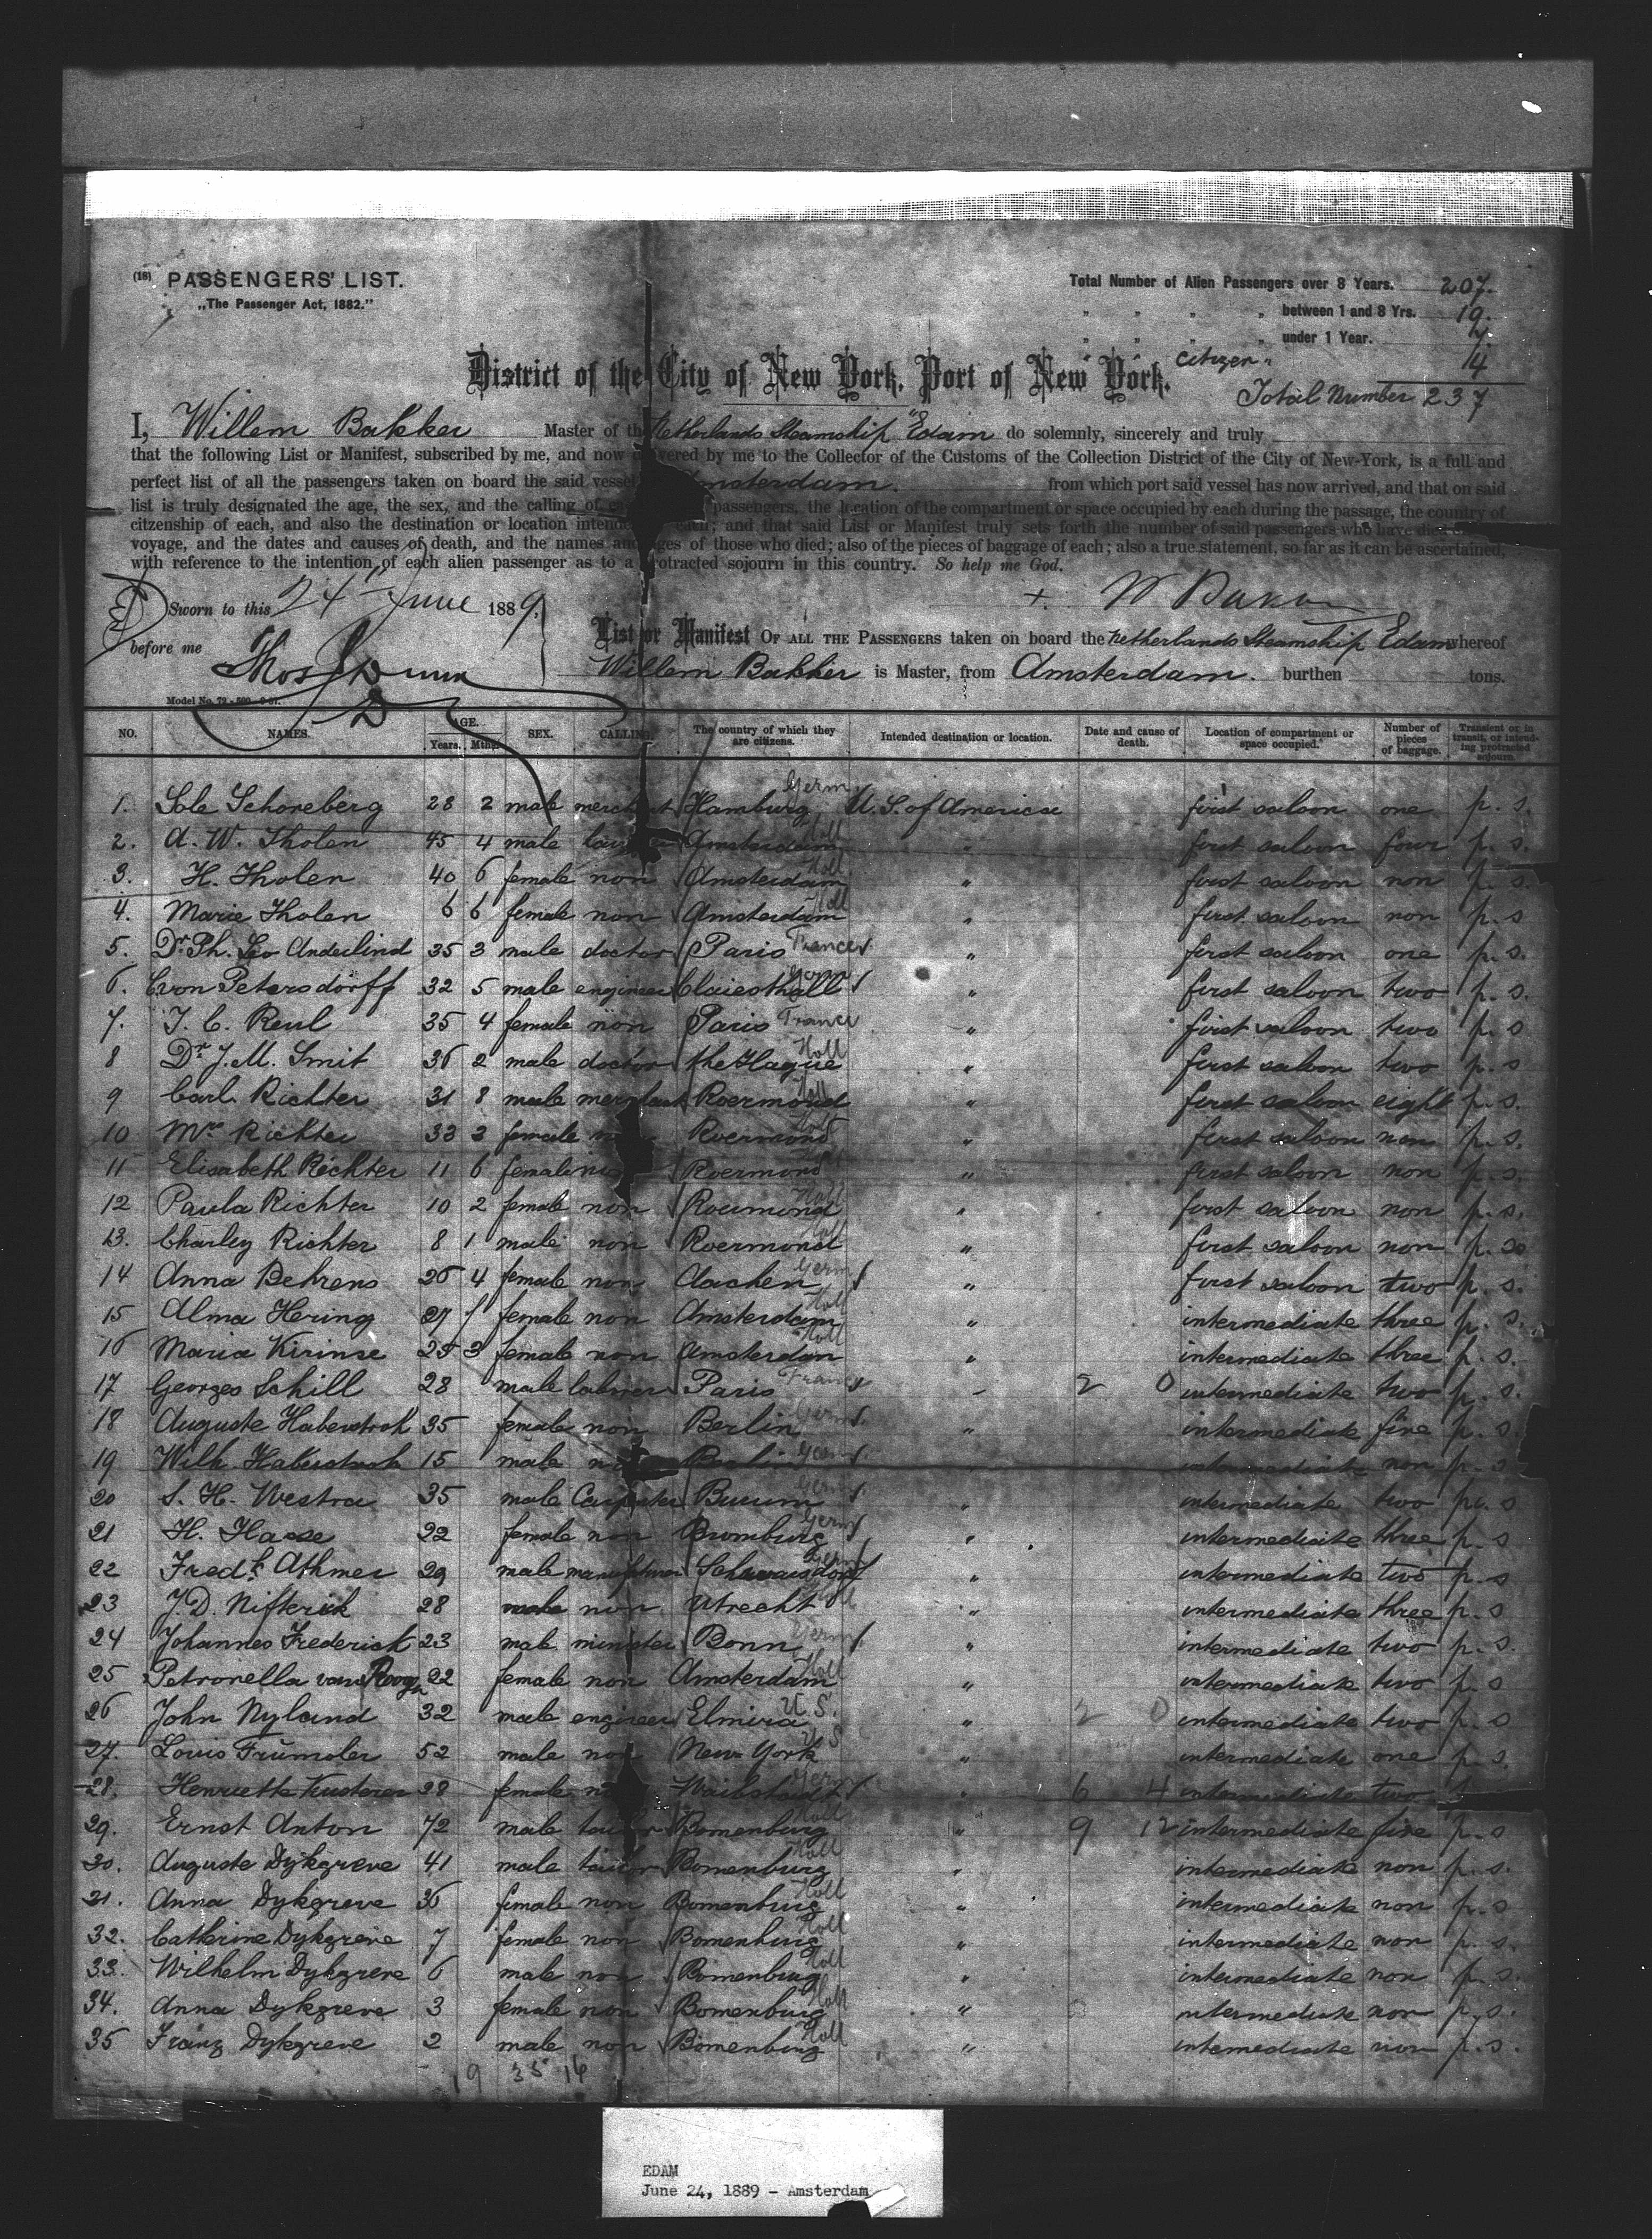 (18) PASSENGERS' LIST.
„The Passenger Act, 1882."
Total Number of Alien Passengers over 8 Years. 207.
„ „ „ „ between 1 and 8 Yrs. 19.
„ „ „ „ under 1 Year. 7.
Citizen „ 4
Total Number 237
District of the City of New York, Port of New York.
I, Willem Bakker Master of the Netherlands Steamship "Edam do solemnly, sincerely and truly
that the following List or Manifest, subscribed by me, and now vered by me to the Collector of the Customs of the Collection District of the City of New-York, is a full and
perfect list of all the passengers taken on board the said vessel Amsterdam. from which port said vessel has now arrived, and that on said
list is truly designated the age, the sex, and the calling of passengers, the location of the compartment or space occupied by each during the passage, the country of
citzenship of each, and also the destination or location intended each; and that said List or Manifest truly sets forth the number of said passengers who have died
voyage, and the dates and causes of death, and the names and ages of those who died; also of the pieces of baggage of each; also a true statement, so far as it can be ascertained,
with reference to the intention of each alien passenger as to a protracted sojourn in this country. So help me God.
Sworn to this 24" June 1889.
+. W Bakker
before me
List or Manifest OF ALL THE PASSENGERS taken on board the Netherlands Steamship Edam whereof
Willem Bakker is Master, from Amsterdam. burthen tons.
NO. NAMES. AGE. Years. Mths. SEX. CALLING. The country of which they are citizens. Intended destination or location. Date and cause of death. Location of compartment or space occupied. Number of pieces of baggage. Transient or in transit, or intending protracted sojourn.
1. Sole Schoneberg 28 2 male merchant Hamburg Germ U. S. of America first saloon one p. s.
2. A. W. Tholen 45 4 male Amsterdam Holl " first saloon four p. s.
3. H. Tholen 40 6 female non Amsterdam Holl " first saloon non p. s.
4. Marie Tholen 6 6 female non Amsterdam Holl " first saloon non p. s
5. Dr. Ph. Leo Anderlind 35 3 male doctor Paris France " first saloon one p. s.
6. C von Petersdorff 32 5 male engineer Germ " first saloon two p. s.
7. T. C. Reul 35 4 female non Paris France " first saloon two p. s
8 Dr. J. M. Smit 36 2 male doctor the Hague Holl " first saloon two p. s
9 Carl Richter 31 8 male merchant Roermond Holl " first saloon eight p. s.
10 Mrs Richter 33 3 female Roermond Holl " first saloon non p. s.
11 Elisabeth Richter 11 6 female Roermond Holl " first saloon non p. s.
12 Paula Richter 10 2 female non Roermond Holl " first saloon non p. s.
13. Charley Richter 8 1 male non Roermond Holl " first saloon non p. s
14 Anna Behrens 26 4 female non Aachen Germ " first saloon two p. s.
15 Alma Hering 27 1 female non Amsterdam Holl " intermediate three p. s.
16 Maria Kirinse 25 3 female non Amsterdam Holl " intermediate three p. s.
17 Georges Schill 28 male labourer Paris France " 2 0 intermediate two p. s.
18 Auguste Haberstroh 35 female non Berlin Germ " intermediate five p. s.
19 Wilh. Haberstroh 15 male Berlin Germ intermediate non p. s
20 S. H. Westra 35 male Carpenter Germ " intermediate two p. s
21 H. Haase 22 female non Bromburg Germ " intermediate three p. s
22 Fred. Athmer 29 male Germ " intermediate two p. s
23 J. D. Nifterick 28 male non Utrecht Holl " intermediate three p. s
24 Johannes Frederick 23 male minister Bonn Germ " intermediate two p. s.
25 Petronella van 22 female non Amsterdam Holl " intermediate two p. s
26 John Nyland 32 male engineer Elmira U. S. " 2 0 intermediate two p. s
27. Louis Frumoler 52 male non New-York U S " intermediate one p. s.
28. Henriette Kusterer 28 female Waibstadt Germ " 6 4 intermediate two
29. Ernst Anton 72 male tailor Bomenburg Holl " 9 12 intermediate five p. s
30. Auguste Dykgreve 41 male tailor Bomenburg Holl " intermediate non p. s.
31. Anna Dykgreve 36 female non Bomenburg Holl " intermediate non p. s
32. Catherine Dykgreve 7 female non Bomenburg Holl " intermediate non p. s.
33. Wilhelm Dykgreve 6 male non Bomenburg Holl " intermediate non p. s.
34. Anna Dykgreve 3 female non Bomenburg Holl " intermediate non p. s.
35 Franz Dykgreve 2 male non Bomenburg Holl " intermediate non p. s.
19 35 16
EDAM
June 24, 1889 - Amsterdam